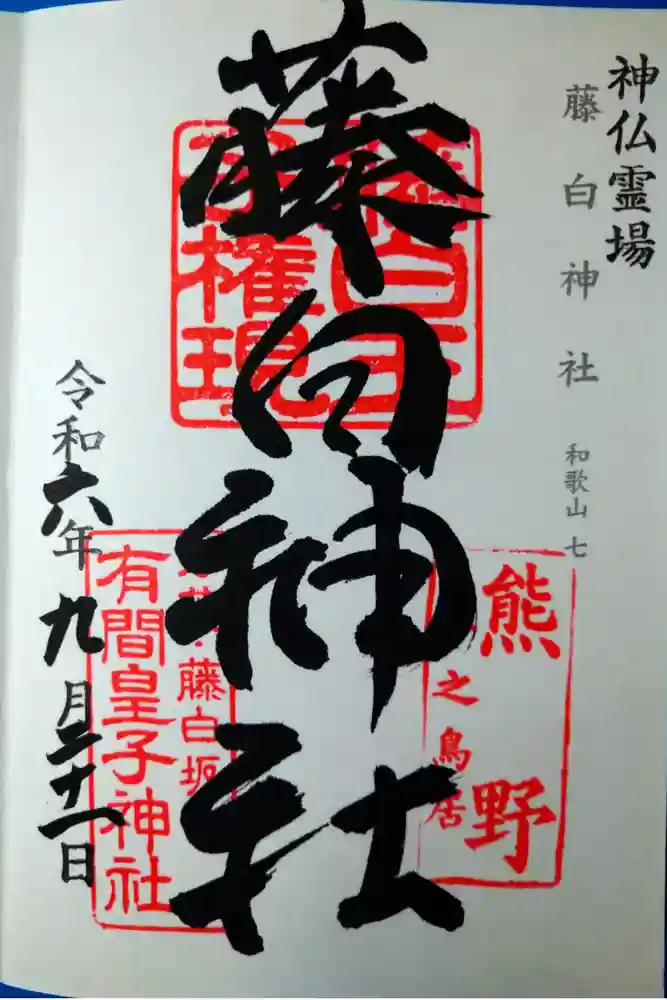 神仏霊場
藤白神社 和歌山 七
藤白神社
権現
熊野
之鳥居
藤白坂
有間皇子神社
令和六年九月二十一日